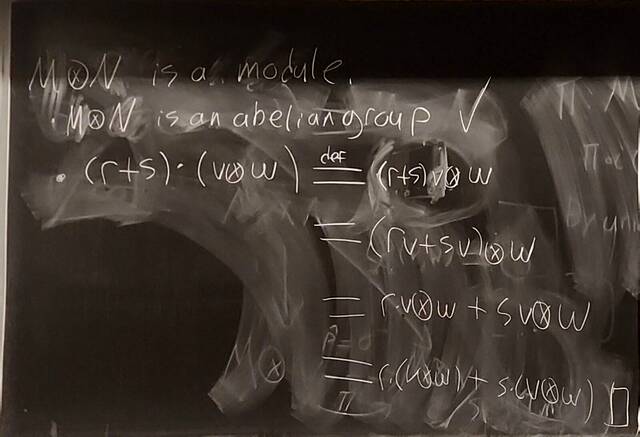 M⊗N is a module.
· M⊗N is an abelian group ✓
· (r+s)·(v⊗w) def = (r+s)v⊗w
= (rv+sv)⊗w
= r·v⊗w + sv⊗w
= r·(v⊗w) + s·(v⊗w) □